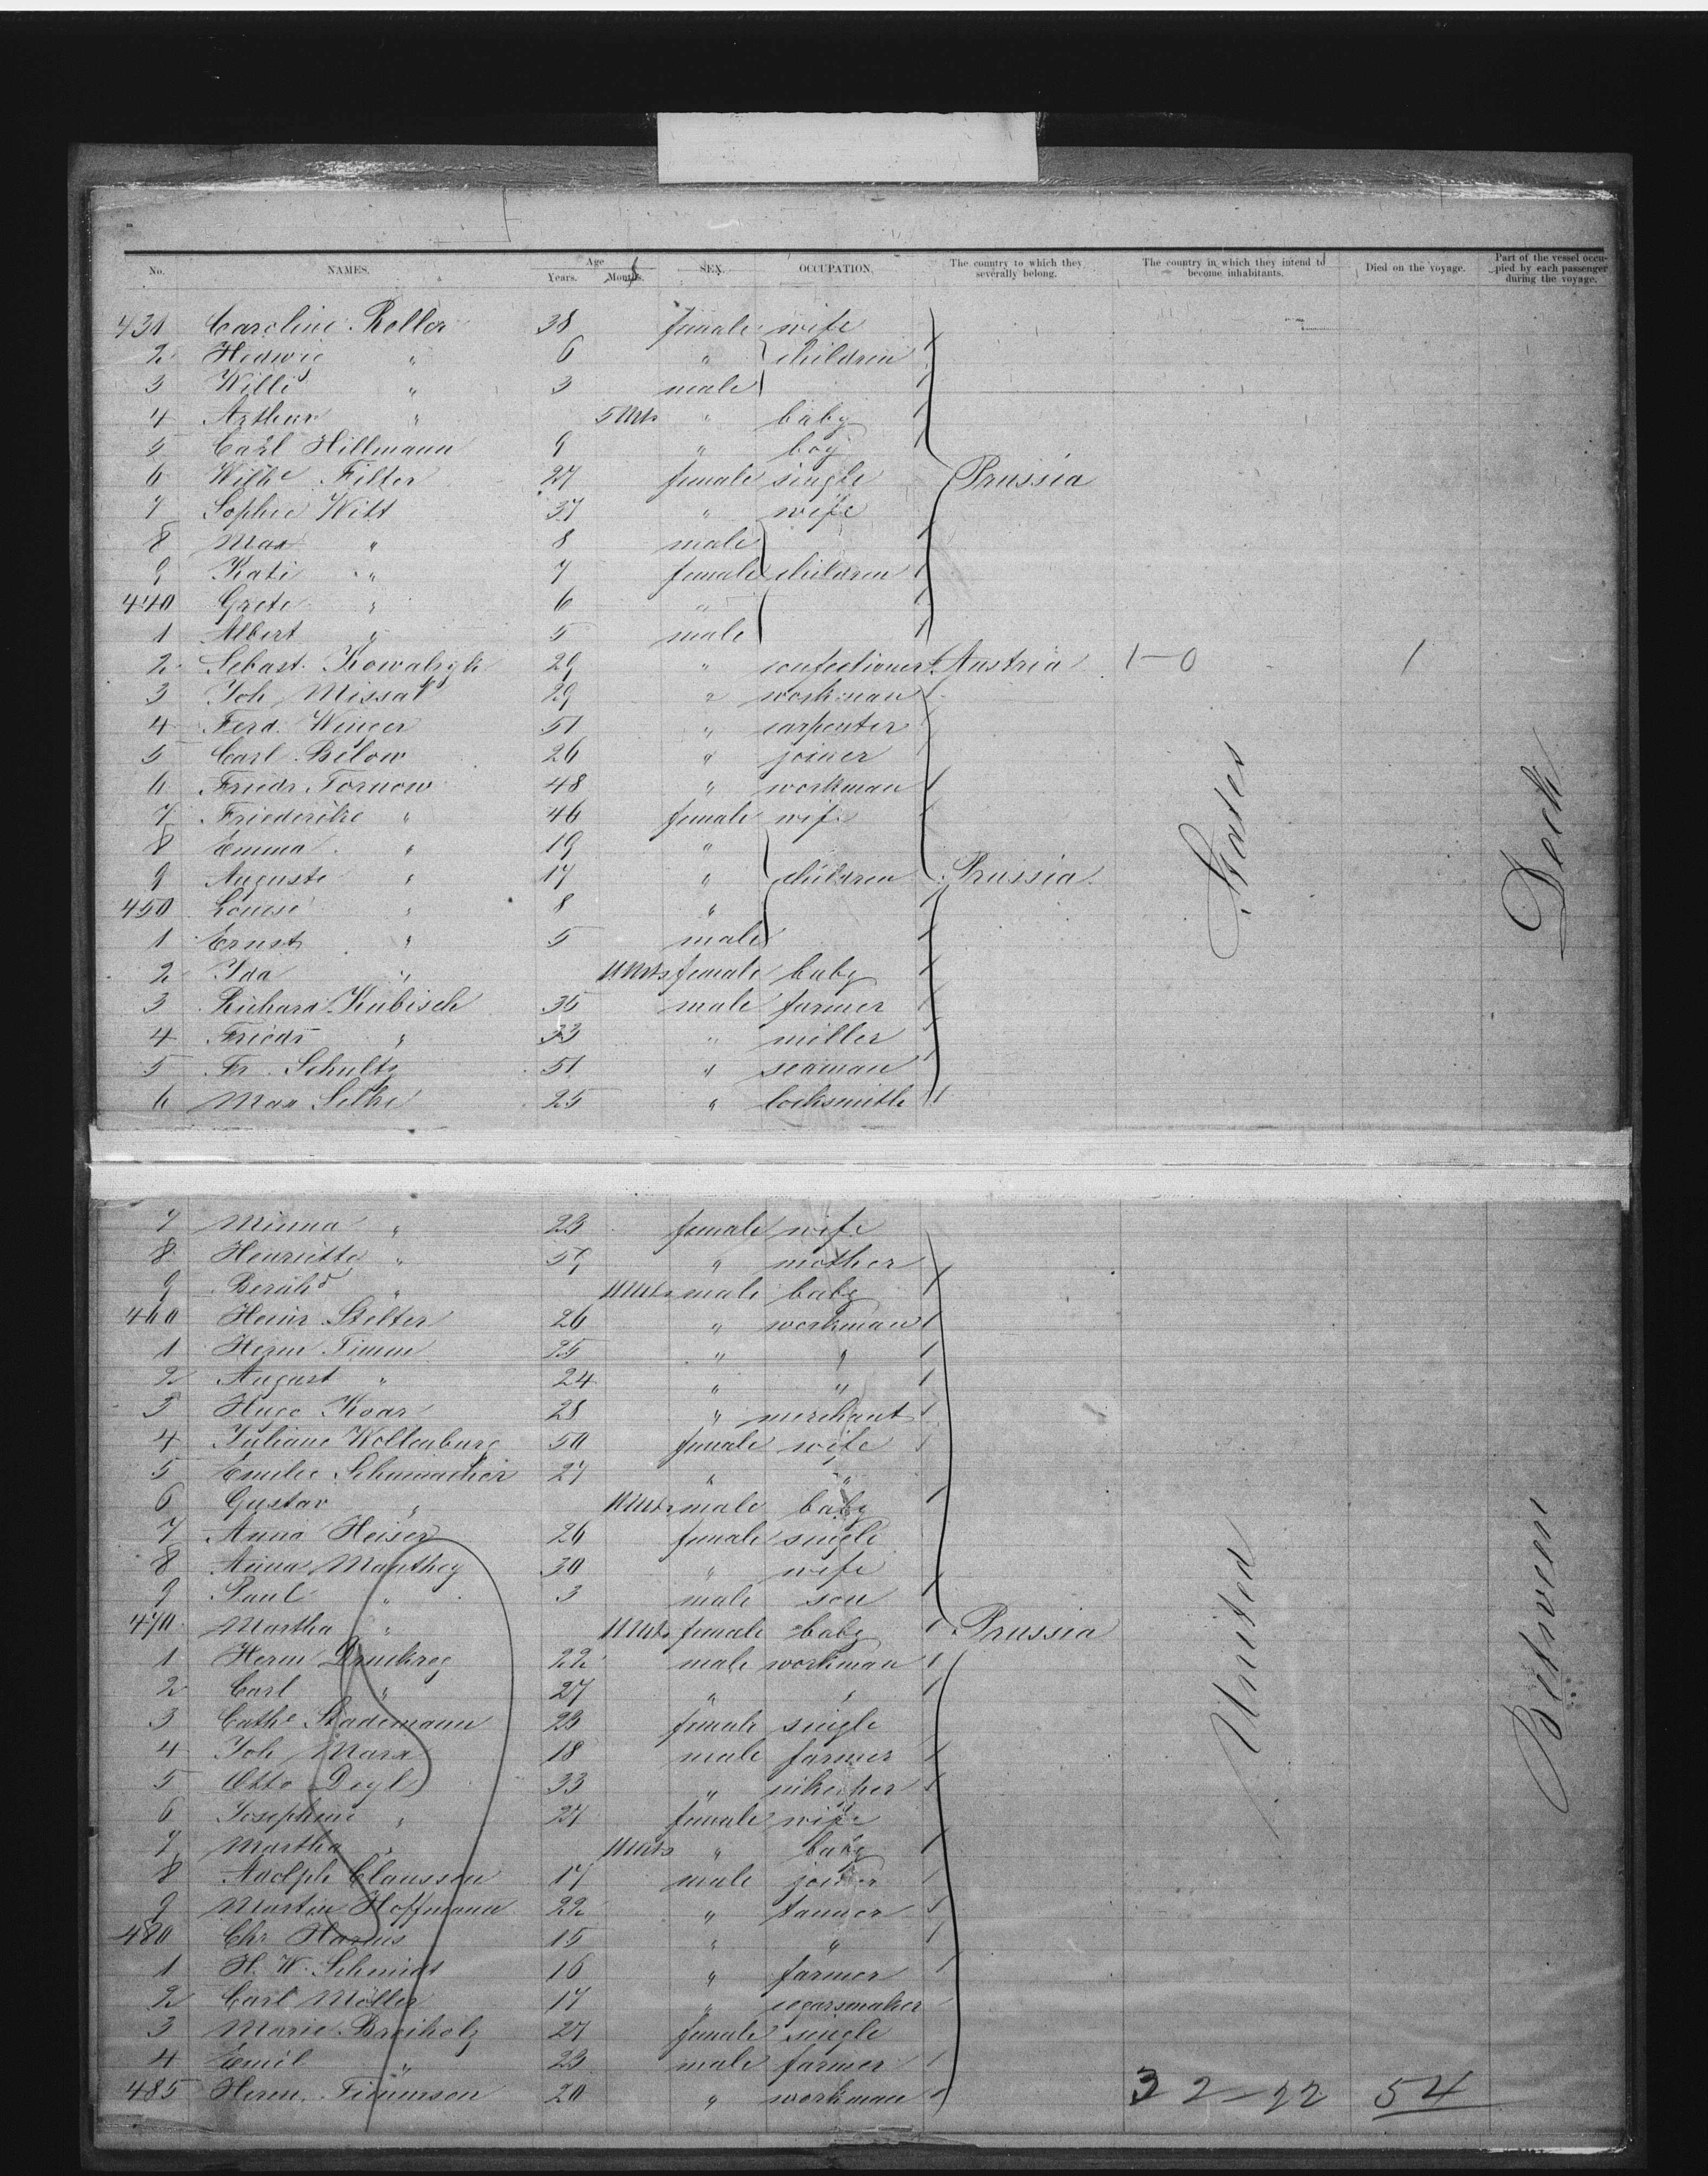 No. NAMES. Age Years. Months. SEX. OCCUPATION. The country to which they severally belong. The country in which they intend to become inhabitants. Died on the voyage. Part of the vessel occupied by each passenger during the voyage.
431 Caroline Roller 38 female wife
2 Hedwig " 6 " children
3 Willi " 3 male
4 Arthur " 5 Mts " baby
5 Carl Hillmann 9 " boy
6 Wilhe Filter 27 female single Prussia
7 Sophie Witt 37 " wife
8 Max " 8 male
9 Kati " 7 female children
440 Grete " 6 "
1 Albert " 5 male
2 Sebast. Kowalzyk 29 " confectioner Austria 1-0 1
3 Joh Missal 29 " workman
4 Ferd. Winger 51 " carpenter
5 Carl Below 26 " joiner
6 Friedr Tornow 48 " workman
7 Friederike " 46 female wife
8 Emma " 19 "
9 Auguste " 17 " children Prussia
450 Louise " 8 "
1 Ernst " 5 male
2 Ida " 11 Mts female baby
3 Richard Kubisch 35 male farmer
4 Friedr " 33 " miller
5 Fr. Schultz 51 " seaman
6 Max Selke 25 " locksmith
States
Deck
7 Minna " 23 female wife
8 Henriette " 59 " mother
9 Bernhd " 11 Mts male baby
460 Heinr Stelter 26 " workman
1 Herm Timm 25 " "
2 August " 24 " "
3 Hugo Koar 28 " merchant
4 Juliane Wollenburg 50 female wife
5 Emilie Schumacher 27 " "
6 Gustav " 11 Mts male baby
7 Anna Heiser 26 female single
8 Anna Manthey 30 " wife
9 Paul " 3 male son
470 Martha " 11 Mts female baby Prussia
1 Herm Druckrey 22 male workman
2 Carl " 27 " "
3 Cathe Stademann 23 female single
4 Joh Marx 18 male farmer
5 Otto Degl 33 "
6 Josephine " 27 female wife
7 Martha " 11 Mts " baby
8 Adolph Claussen 17 male joiner
9 Martin Hoffmann 22 " tanner
480 Chr Harms 15 " "
1 H. W. Schmidt 16 " farmer
2 Carl Möller 17 " cigarsmaker
3 Marie Breiholz 27 female single
4 Emil " 23 male farmer
485 Herm. Timmsen 20 " workman 32-22 54
United
Between